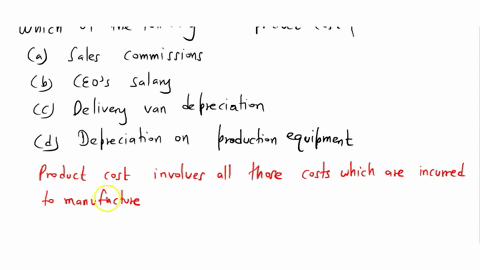 which of the following product cost
(a) Sales commissions
(b) CEO's salary
(c) Delivery van depreciation
(d) Depreciation on production equipment
Product cost involves all those costs which are incurred
to manufacture